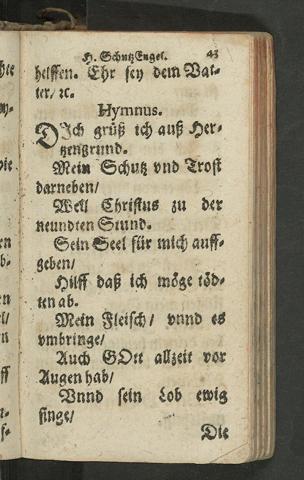 H. SchutzEngel. 43
helffen. Ehr sey dem Vat-
ter/ ꝛc.
Hymnus.
DIch grüß ich auß Her-
tzengrund.
Mein Schutz vnd Trost
darneben/
Well Christus zu der
neundten Stund.
Sein Seel für mich auff-
geben/
Hilff daß ich möge töd-
ten ab.
Mein Fleisch/ vnnd es
vmbringe/
Auch GOtt allzeit vor
Augen hab/
Vnnd sein Lob ewig
singe/
Die